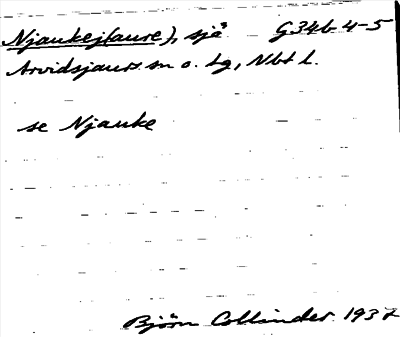 Njaukej(aure), sjö G34b 4-5
Arvidsjaurs sn o. tg, Nbt l.
se Njauke
Björn Collinder 1937